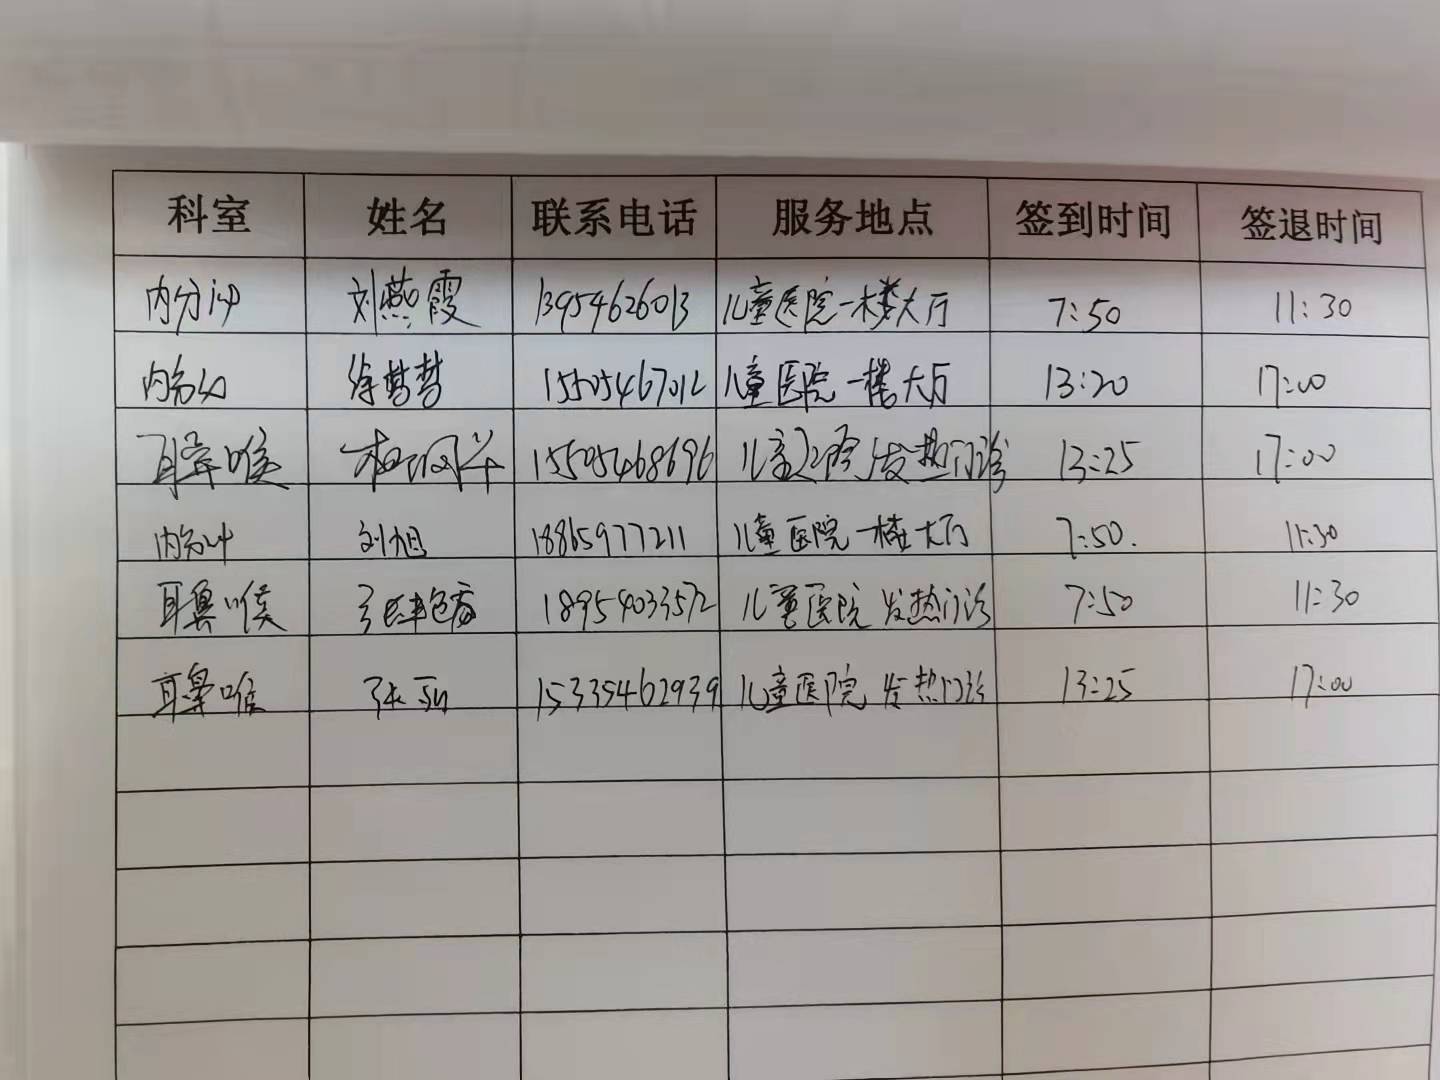 科室 姓名 联系电话 服务地点 签到时间 签退时间
内分泌 刘燕霞 13954626013 儿童医院一楼大厅 7:50 11:30
内分泌 徐梦梦 15505467012 儿童医院一楼大厅 13:20 17:00
耳鼻喉 15505468696 儿童医院发热门诊 13:25 17:00
内分泌 刘旭 18865977211 儿童医院一楼大厅 7:50. 11:30
耳鼻喉 18954033572 儿童医院发热门诊 7:50 11:30
耳鼻喉 15335462939 儿童医院发热门诊 13:25 17:00